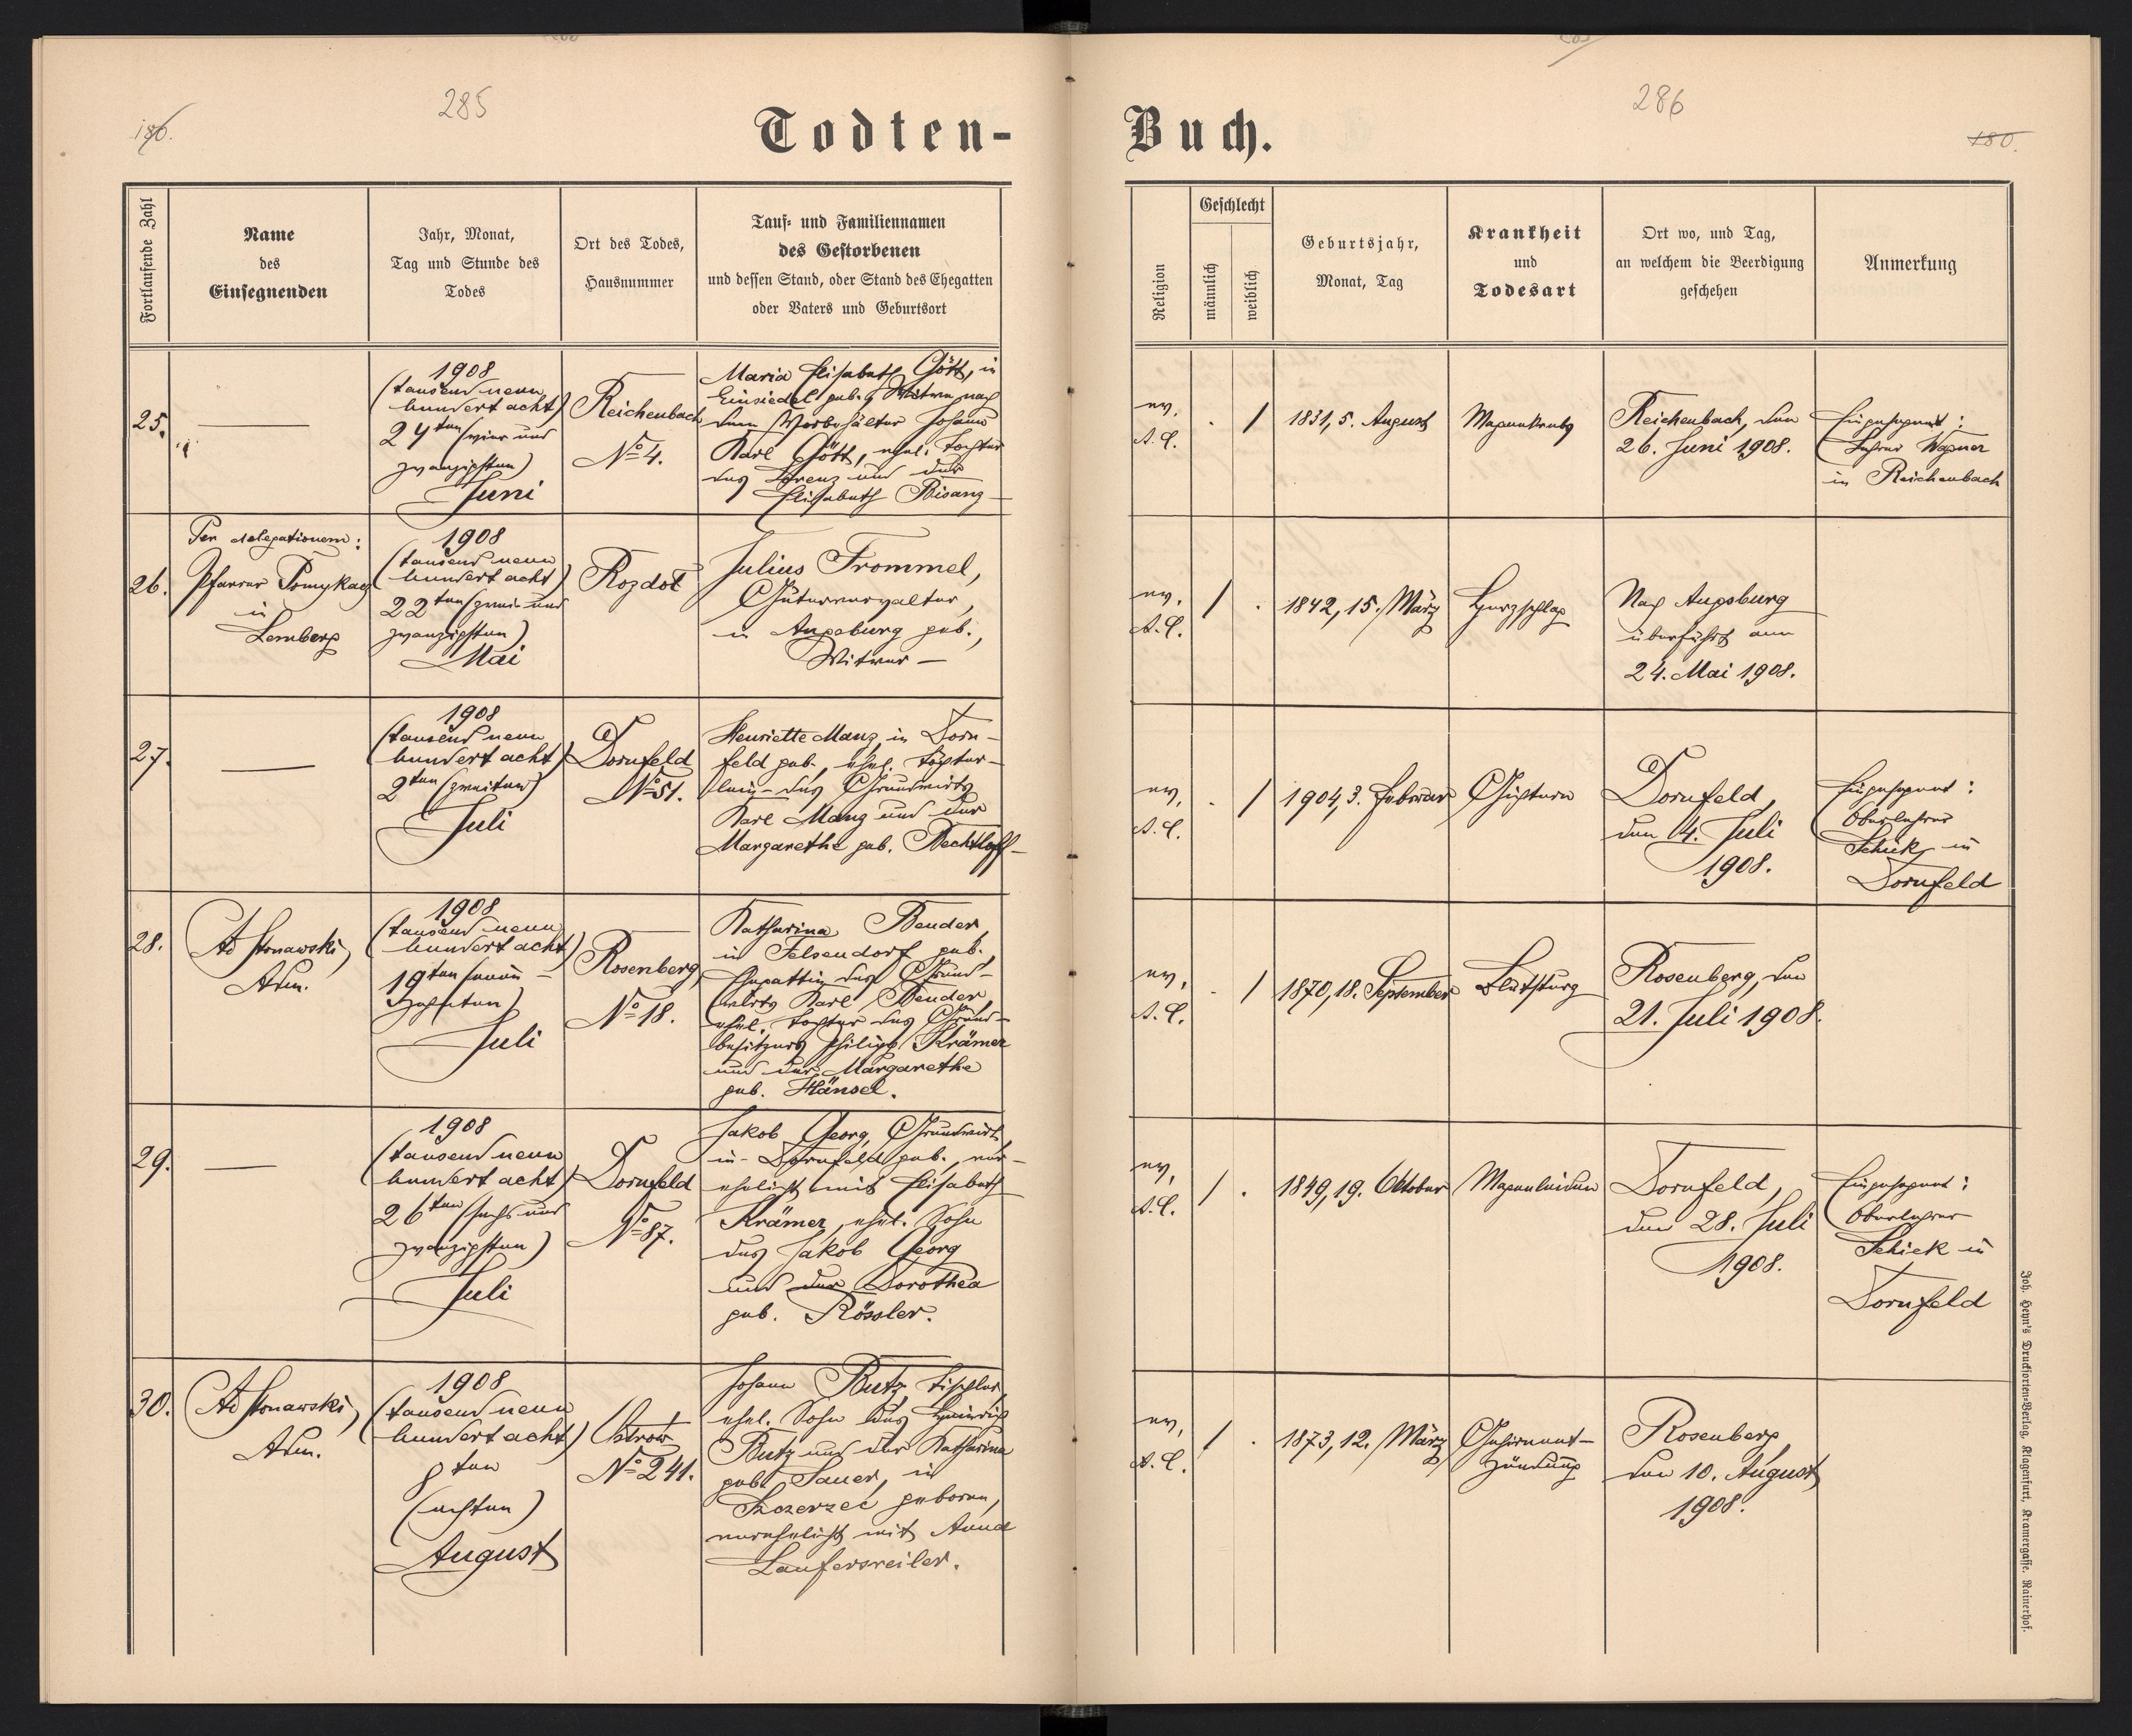 285
186.
Todten-
Fortlaufende Zahl
Name
des
Einsegnenden
Jahr, Monat,
Tag und Stunde des
Todes
Ort des Todes,
Hausnummer
Tauf- und Familiennamen
des Gestorbenen
und dessen Stand, oder Stand des Ehegatten
oder Vaters und Geburtsort
25.
1908
(tausend neun
hundert acht)
24ten (vier und
zwanzigsten)
Juni
Reichenbach
No 4.
Maria Elisabeth Gött, in
Einsiedel geb., Witwe nach
dem Vorbehälter Johann
Karl Gött, ehel. Tochter
des Lorenz und der
Elisabeth Bisanz
26.
Per delegationem:
Pfarrer
in
Lemberg
1908
(tausend neun
hundert acht)
22ten (zwei und
zwanzigsten)
Mai
Rozdoł
Julius Frommel,
Güterverwalter,
in Augsburg geb.,
Witwer
27.
1908
(tausend neun
hundert acht)
2ten (zweiten)
Juli
Dornfeld
No 51.
Henriette Manz, in Dorn-
feld geb., ehel. Töchter-
lein des Grundwirts
Karl Manz und der
Margarethe geb. Bechtloff
28.
1908
(tausend neun
hundert acht)
19ten (neun-
zehnten)
Juli
Rosenberg,
No 18.
Katharina Bender,
in Felsendorf geb.,
Ehegattin des Grund-
wirts Karl Bender,
ehel. Tochter des Grund-
besitzers Philipp Krämer
und der Margarethe
geb. Hänsel.
29.
1908
(tausend neun
hundert acht)
26ten (sechs und
zwanzigsten)
Juli
Dornfeld
No 87.
Jakob Georg, Grundwirt,
in Dornfeld geb., ver-
ehelicht mit Elisabeth
Krämer, ehel. Sohn
des Jakob Georg
und der Dorothea
geb. Rössler.
30.
1908
(tausend neun
hundert acht)
8ten
(achten)
August
Ostrow
No 241.
Johann Butz, Tischler,
ehel. Sohn des Heinrich
Butz und der Katharina
geb. Sauer, in
Szczerzec geboren,
verehelicht mit Anna
Laufersweiler.
286
180.
Buch.
Religion
Geschlecht
männlich
weiblich
Geburtsjahr,
Monat, Tag
Krankheit
und
Todesart
Ort wo, und Tag,
an welchem die Beerdigung
geschehen
Anmerkung
ev.
A.C.
. /
1831, 5. August
Magenkrebs
Reichenbach, den
26. Juni 1908.
Eingesegnet:
Lehrer Wagner
in Reichenbach
ev.
A.C.
/ .
1842, 15. März
Herzschlag
Nach Augsburg
überführt am
24. Mai 1908.
ev.
A.C.
. /
1904, 3. Februar
Gichtern
Dornfeld,
den 4. Juli
1908.
Eingesegnet:
Oberlehrer
Schick in
Dornfeld
ev.
A.C.
. /
1870, 18. September
Blutsturz
Rosenberg, den
21. Juli 1908.
ev.
A.C.
/ .
1849, 19. Oktober
Magenleiden
Dornfeld,
den 28. Juli
1908.
Eingesegnet:
Oberlehrer
Schick in
Dornfeld
ev.
A.C.
/ .
1873, 12. März
Gehirnent-
zündung
Rosenberg
den 10. August
1908.
Joh. Heyn's Drucksorten-Verlag, Klagenfurt, Kramergasse, Rainerhof.